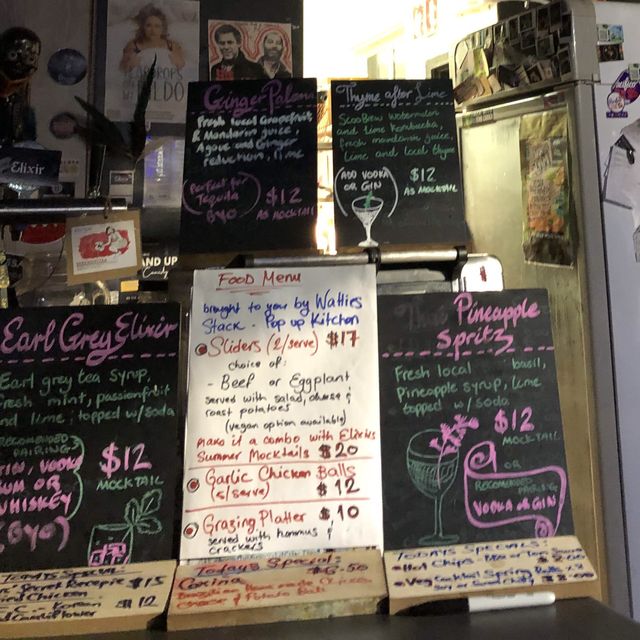 Ginger Paloma
Fresh local Grapefruit
& Mandarin juice,
Agave and Ginger
reduction, lime
Perfect for
Tequila
BYO
$12
AS MOCKTAIL
Thyme after Lime
ScooBrew watermelon
and lime kombucha,
fresh mandarin juice,
lime and local thyme
ADD VODKA
OR GIN
$12
AS MOCKTAIL
Elixir
AND UP
Comedy
Earl Grey Elixir
Earl grey tea syrup,
fresh mint, passionfruit
and lime, topped w/soda
RECOMMENDED
PAIRING
GIN, VODKA
RUM OR
WHISKEY
(BYO)
$12
MOCKTAIL
FOOD MENU
brought to you by Watties
Stack - Pop up Kitchen
Sliders (2/serve) $17
choice of:
- Beef or Eggplant
served with salad, cheese &
roast potatoes
(vegan option available)
Make it a combo with Elixirs
Summer Mocktails $20
Garlic Chicken Balls
(5/serve) $12
Grazing Platter $10
served with hommus &
crackers
Thai Pineapple
Spritz
Fresh local basil,
Pineapple syrup, lime
topped w/soda
$12
MOCKTAIL
OR
RECOMMENDED
PAIRING
VODKA OR GIN
$15
$12
Todays Special:
Cheese & Potato Ball
TODAYS SPECIALS:
Hot Chips
Veg Cocktail Spring Rolls